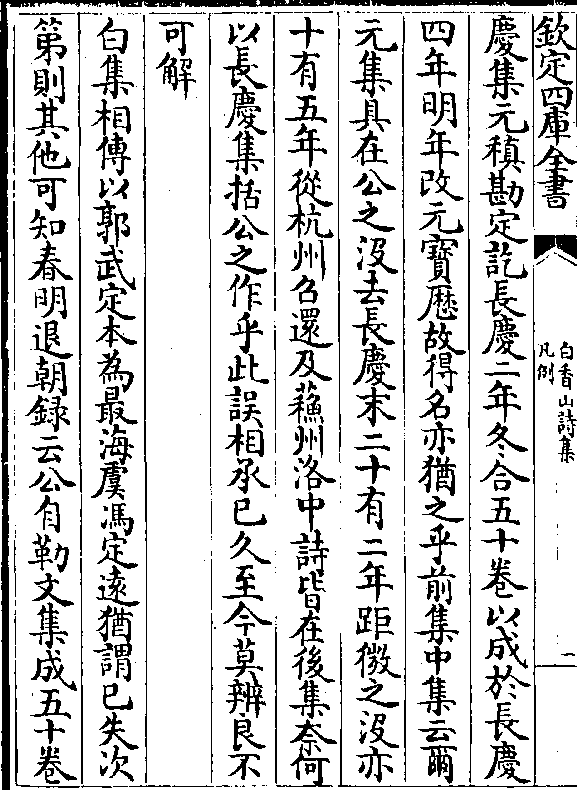 欽定四庫全書
白香山詩集
凡例
一
慶集元稹勘定訖長慶二年冬合五十卷以成於長慶
四年明年改元寳厯故得名亦猶之乎前集中集云爾
元集具在公之沒去長慶末二十有二年距微之沒亦
十有五年從杭州召還及蘓州洛中詩皆在後集奈何
以長慶集括公之作乎此誤相承已久至今莫辨良不
可解
白集相傳以郭武定本為最海虞馮定遠猶謂已失次
第則其他可知春明退朝録云公自勒文集成五十卷